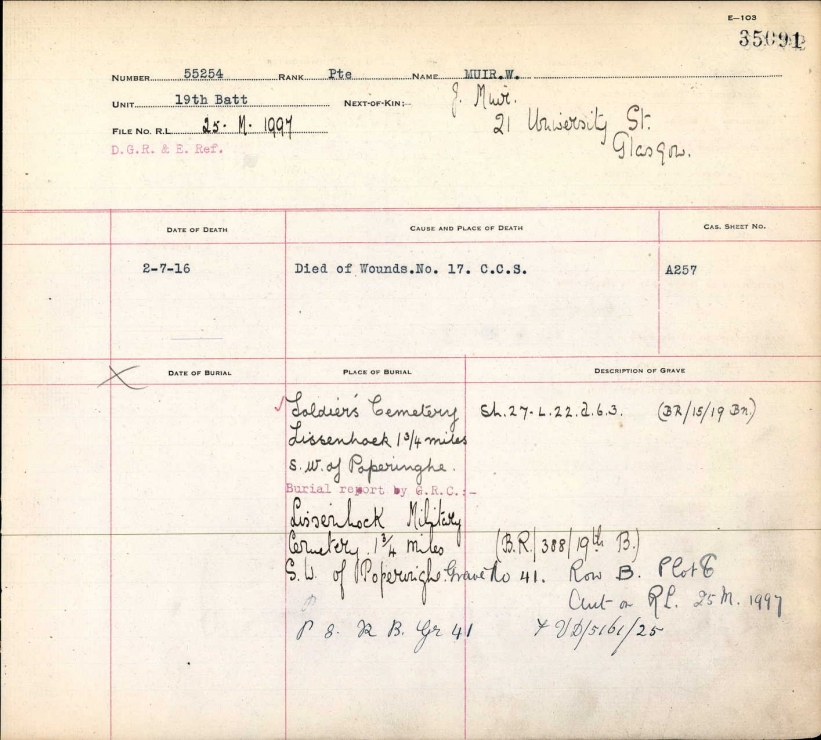 E—103
35091
NUMBER 55254 RANK Pte NAME MUIR.W.
UNIT 19th Batt NEXT-OF-KIN:— J. Muir.
21 University St.
Glasgow.
FILE No. R.L. 25. M. 1997
D.G.R. & E. Ref.
DATE OF DEATH CAUSE AND PLACE OF DEATH CAS. SHEET NO.
2-7-16 Died of Wounds.No. 17. C.C.S. A257
DATE OF BURIAL PLACE OF BURIAL DESCRIPTION OF GRAVE
Soldier's Cemetery Sh.27.L.22.d.6.3. (BR/15/19 Bn)
Lissenhoek 1 3/4 miles
S.W. of Poperinghe.
Burial report by G.R.C.:—
Lissenhock Military
Cemetery. 1 3/4 miles (B.R./388/19th B.)
S.W. of Poperinghe. Grave No 41. Row B. Plot
on RL. 25 M. 1997
P 8. R B. Gr 41 VD/5161/25